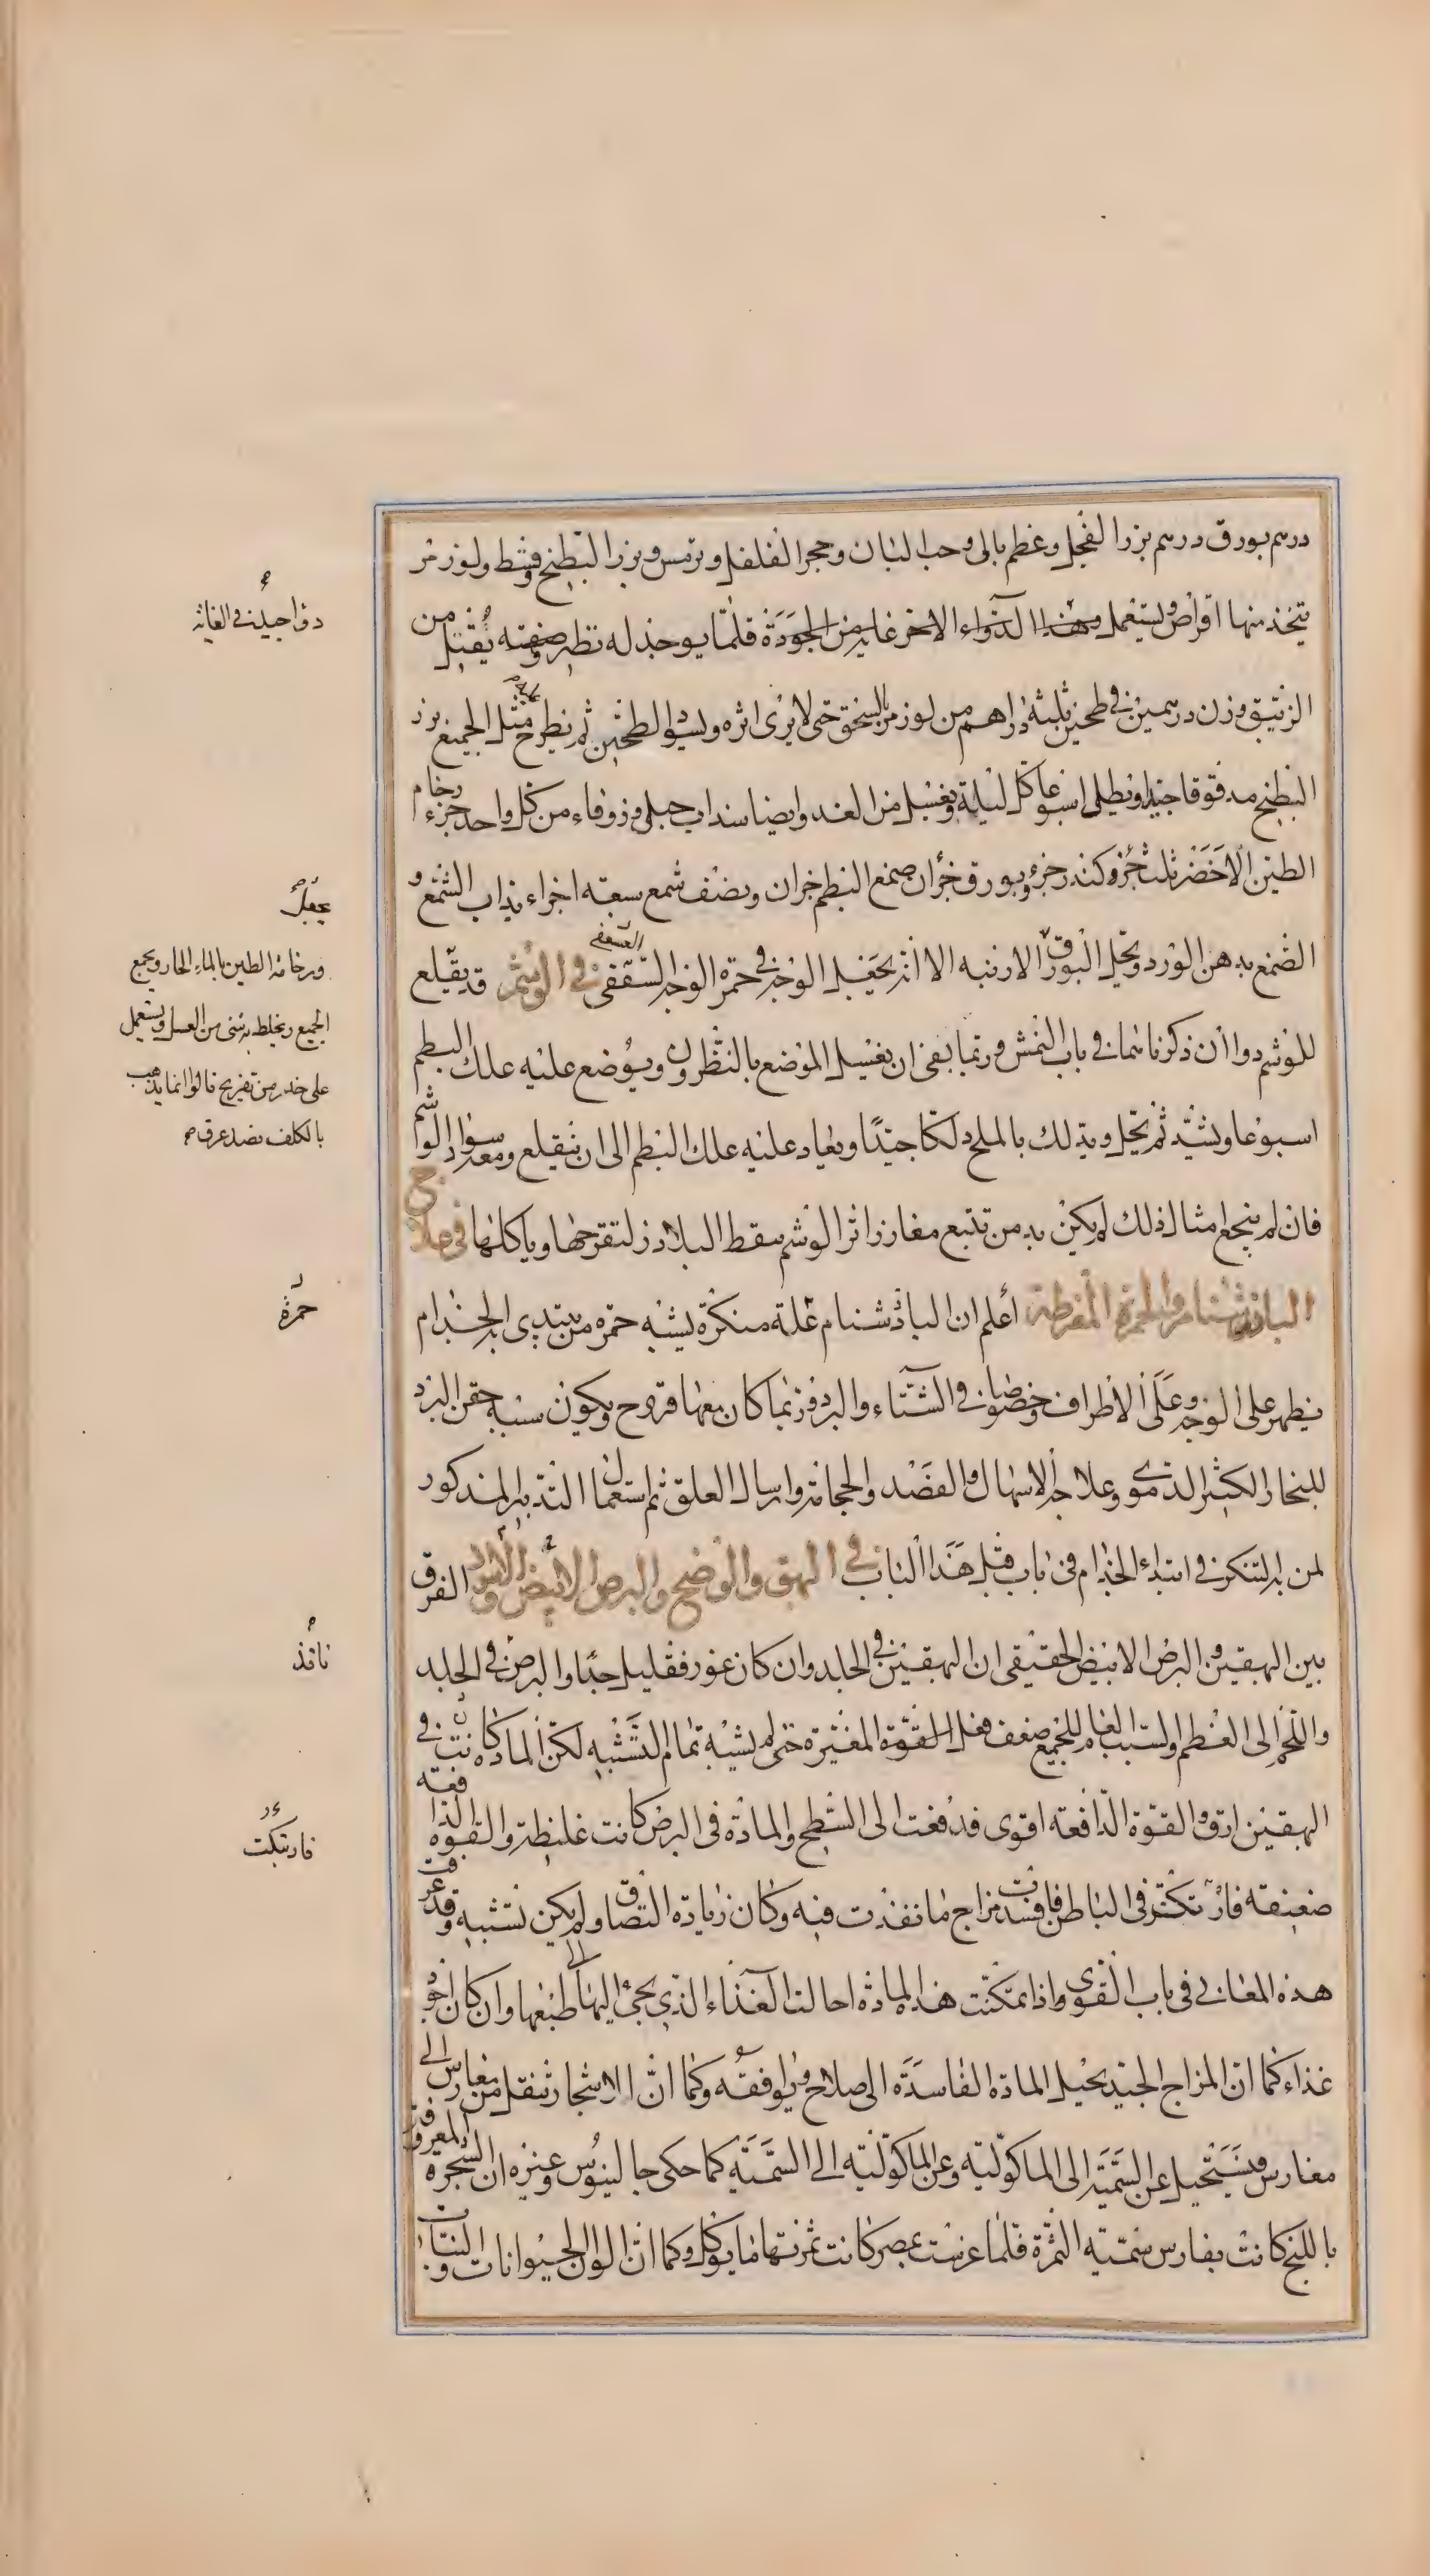 درهم بورق درهم بزر الفجل وعظم بالى وحب البان وحجر الفلفل وترمس وبزر البطيخ وقسط ولوز مر
يتخذ منها اقراص ويستعمل وهذا الدواء الاخر غاية من الجودة قلما يوجد له نظير وصفته يقتل من
الزئبق وزن درهمين في طحين ثلثة دراهم من لوز مر بالسحق حتى لا يرى اثره ويسود الطحين ثم يطرح مثل الجميع بزر
البطيخ مدقوقا جيدا ويطلى اسبوعا كل ليلة ويغسل من الغد وايضا سنداب جبلى وزوفاء من كل واحد جزء رخام
الطين الاخضر ثلث جزء كندر جزء وبورق جزأن صمغ البطم جزان ونصف شمع سبعة اجزاء يذاب الشمع و
الصمغ بدهن الورد ويحل البورق الارنبه الا انه يجعل الوجه في حمرة الوجه السقفى في الوشم قد يقلع
للوشم دواأن ذكرناهما في باب النمش وربما بقى ان يغسل الموضع بالنطرون ويوضع عليه علك البطم
اسبوعا ويشد ثم يحل ويدلك بالملح دلكا جيدا ويعاد عليه علك البطم الى ان ينقلع ومعه سواد الواشم
فان لم ينجع امثال ذلك لم يكن بد من تتبع مغارز اثر الوشم بنقط البلاذر لتقرحها وياكلها في علاج
الباذشنام والحمرة المفرطة أعلم ان الباذشنام علة منكرة يشبه حمرة من يبتدى به الجذام
يظهر على الوجه وعلى الاطراف وخصوصا في الشتاء والبرد وربما كان معها قروح ويكون سببه حقن البرد
للبخار الكثير الدموى وعلاجه الاسهال والفصد والحجامة وارسال العلق ثم استعمال التدبير المذكور
لمن به التنكر في ابتداء الجذام في باب قبل هذا الباب في البهق والوضح والبرص الابيض والاسود الفرق
بين البهقين والبرص الابيض الحقيقى ان البهقين في الجلد وان كان غور فقليل جدا والبرص في الجلد
واللحم الى العظم والسبب العام للجميع ضعف فعل القوة المغيرة حتى لم يشبه تمام التشبه لكن المادة كانت في
البهقين ارق والقوة الدافعة اقوى فدفعت الى السطح والمادة في البرص كانت غليظة والقوة الدافعة
ضعيفة فارتكنت في الباطن فافسدت مزاج ما نفذت فيه وكان زيادة التصاق ولم يكن تشبيه وقد عرفت
هذه المعانى في باب القوى واذا تمكنت هذه المادة احالت الغذاء الذي يجئ اليها الى طبعها وان كان اجود
غذاء كما ان المزاج الجيد يحيل المادة الفاسدة الى صلاح ويوافقه وكما ان الاشجار تنقل من مغارس الى
مغارس فيستحيل عن السمية الى الماكولية وعن الماكولية الى السمية كما حكى جالينوس وغيره ان الشجرة المعروفة
باللبخ كانت بفارس سمية الثمرة فلما غرست بمصر كانت ثمرتها مما يوكل وكما ان الوان الحيوانات والنبات
دواء جيد في الغاية
يجعل
ورخامة الطين بالماء الحار ويجمع
الجميع ويخلط به شئ من العسل ويستعمل
على حذر من تقريح قالوا انما يذهب
بالكلف بصد عرق
حمرة
نافذ
فارتبكت